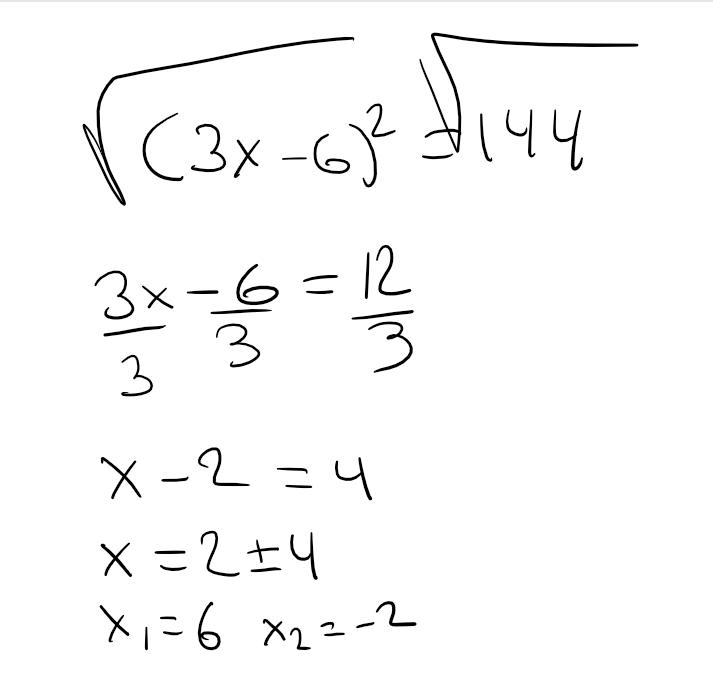 √(3x-6)² = √144
3x/3 - 6/3 = 12/3
x - 2 = 4
x = 2 ± 4
x₁ = 6 x₂ = -2